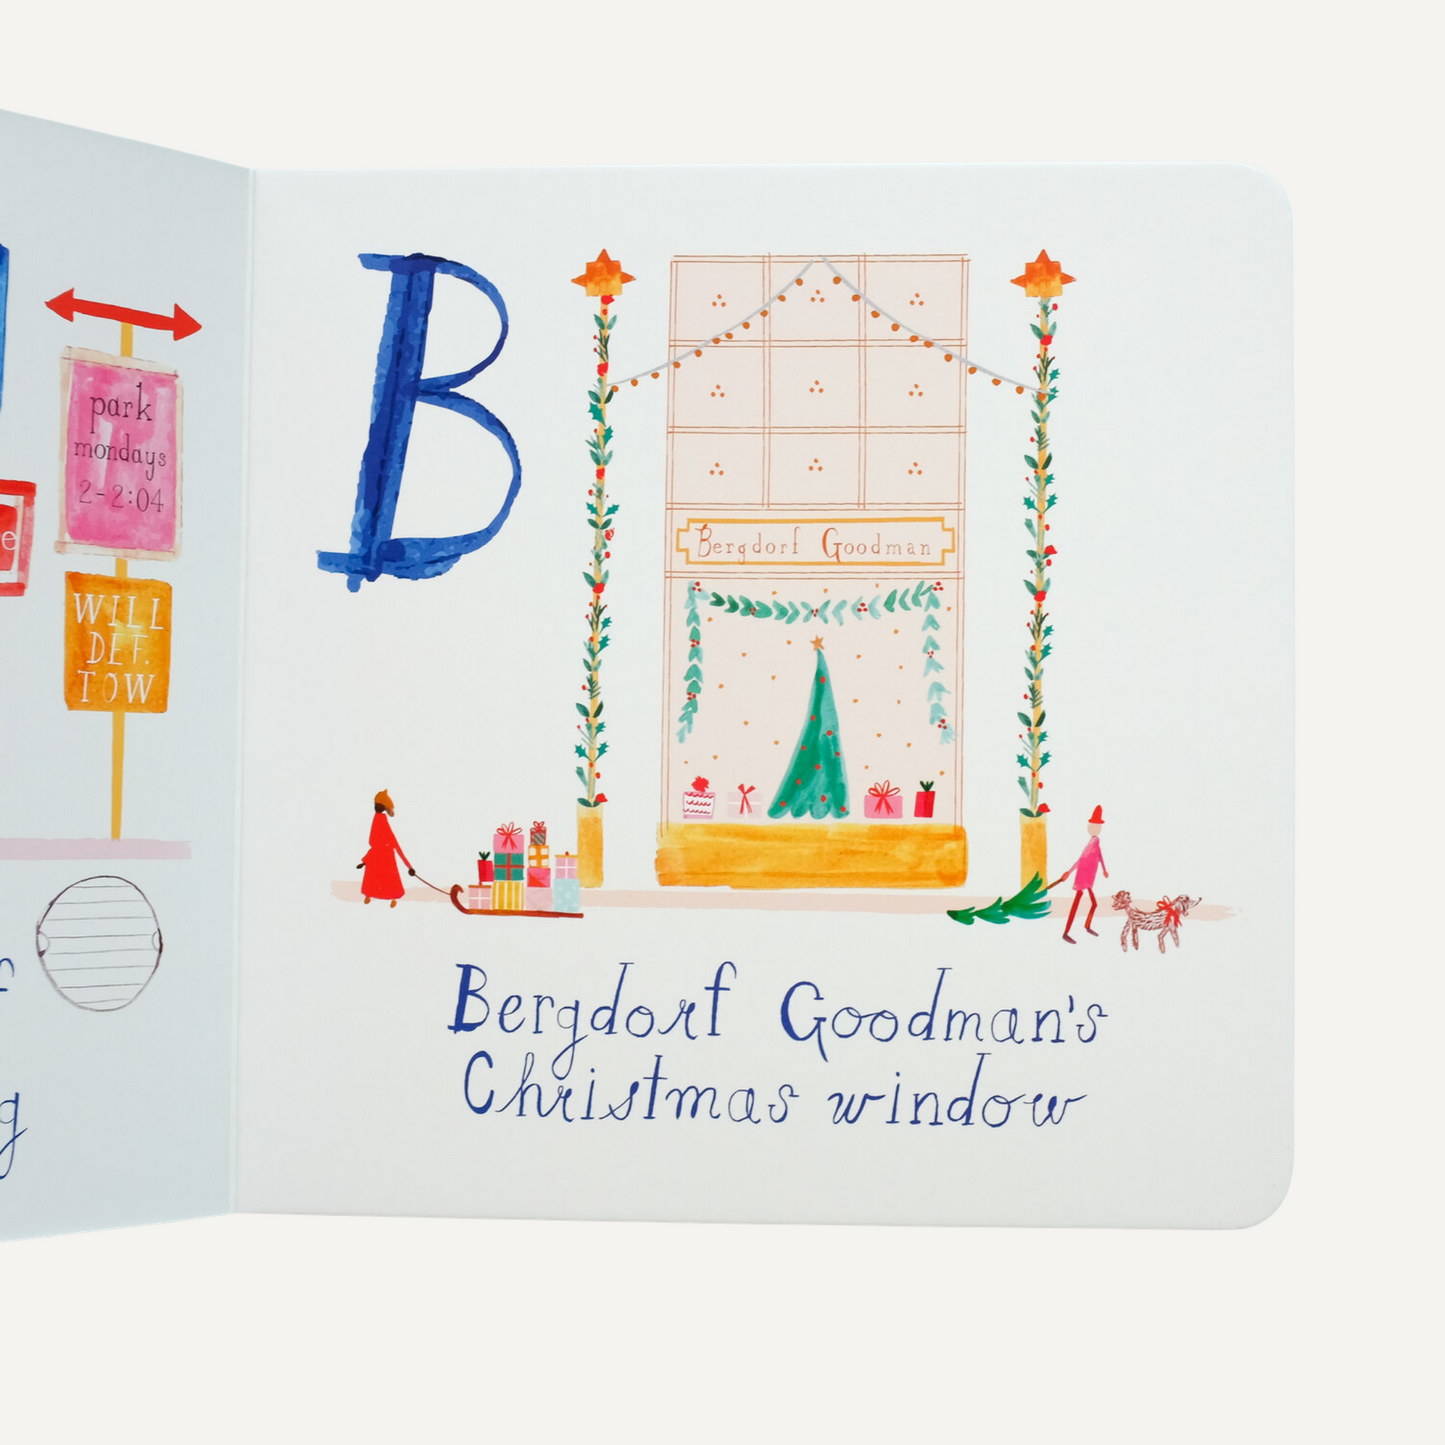 park
mondays
2-2:04
WILL
DEF.
TOW
B
Bergdorf Goodman
Bergdorf Goodman's
Christmas window